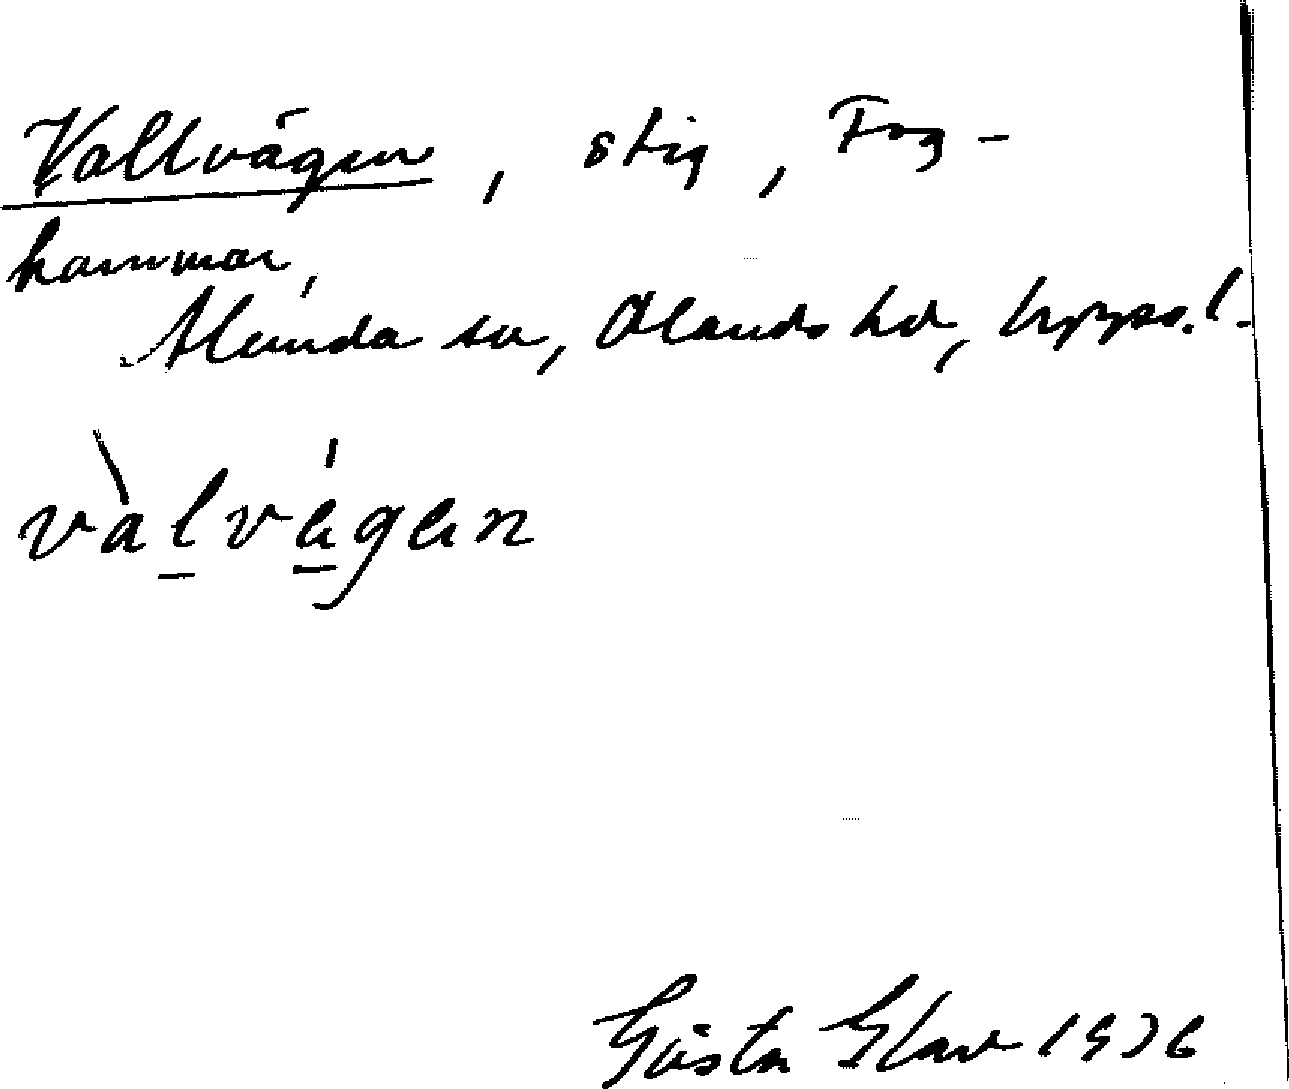 Vallvägen, stig, Fog-
hammar,
Alunda sn, Olands hd, Uppsa.l.
vàlvágän
Gösta Elav 1936